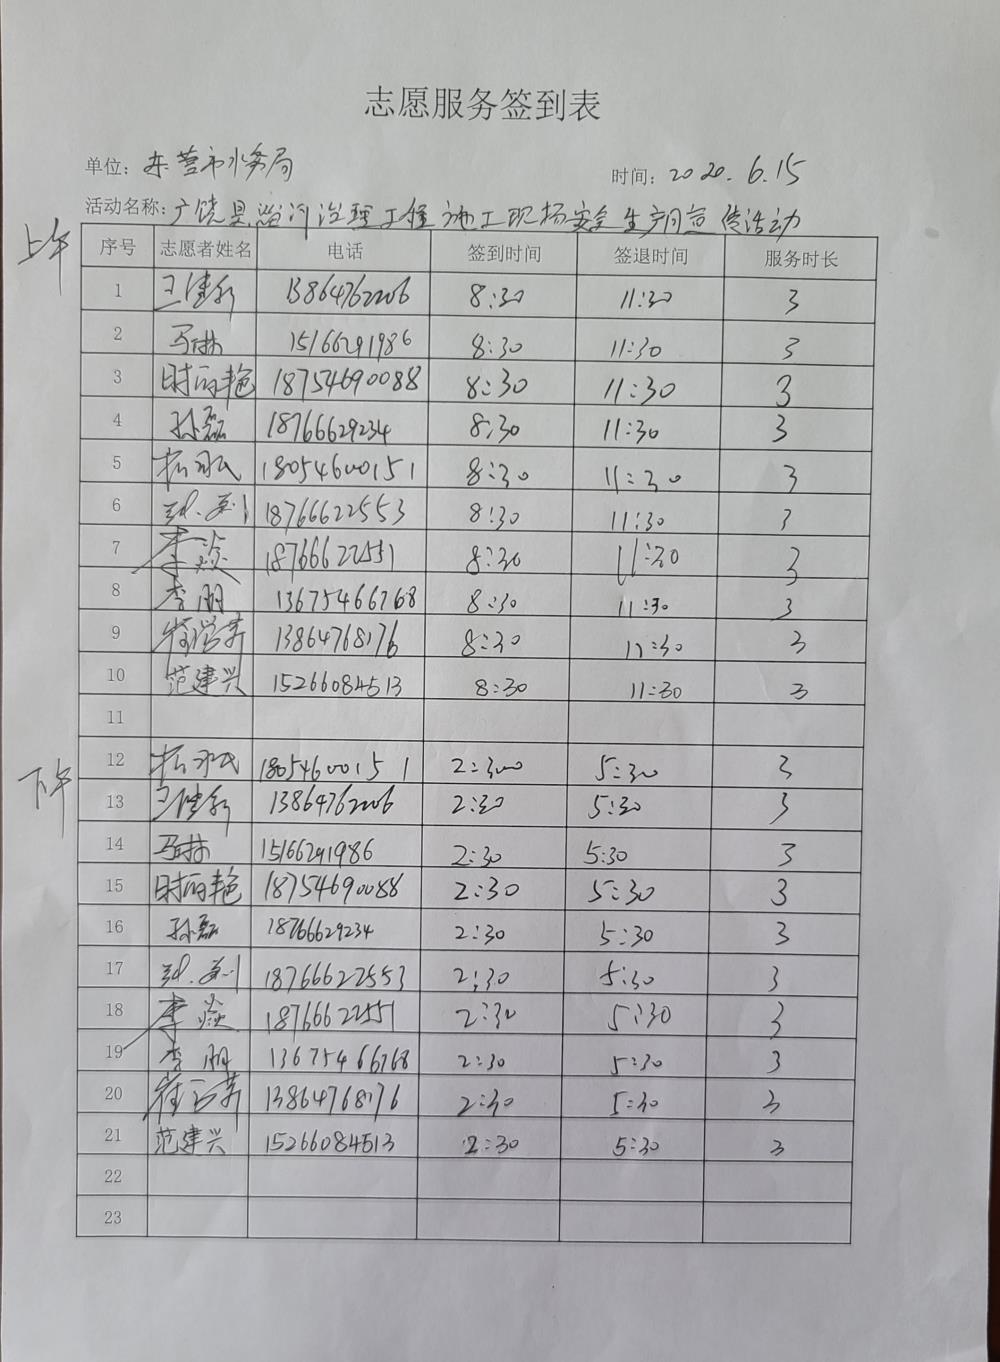 志愿服务签到表
单位: 东营市水务局 时间: 2020.6.15
活动名称: 广饶县淄河治理工程施工现场安全生产月宣传活动
上午
序号 志愿者姓名 电话 签到时间 签退时间 服务时长
1 13864762206 8:30 11:30 3
2 马琳 15166291986 8:30 11:30 3
3 时丽艳 18754690088 8:30 11:30 3
4 孙磊 18766629234 8:30 11:30 3
5 18054600151 8:30 11:30 3
6 18766622553 8:30 11:30 3
7 李焱 18766622551 8:30 11:30 3
8 李朋 13675466768 8:30 11:30 3
9 13864768176 8:30 11:30 3
10 范建兴 15266084513 8:30 11:30 3
11
下午
12 18054600151 2:30 5:30 3
13 13864762206 2:30 5:30 3
14 马琳 15166291986 2:30 5:30 3
15 时丽艳 18754690088 2:30 5:30 3
16 孙磊 18766629234 2:30 5:30 3
17 18766622553 2:30 5:30 3
18 李焱 18766622551 2:30 5:30 3
19 李朋 13675466768 2:30 5:30 3
20 13864768176 2:30 5:30 3
21 范建兴 15266084513 2:30 5:30 3
22
23